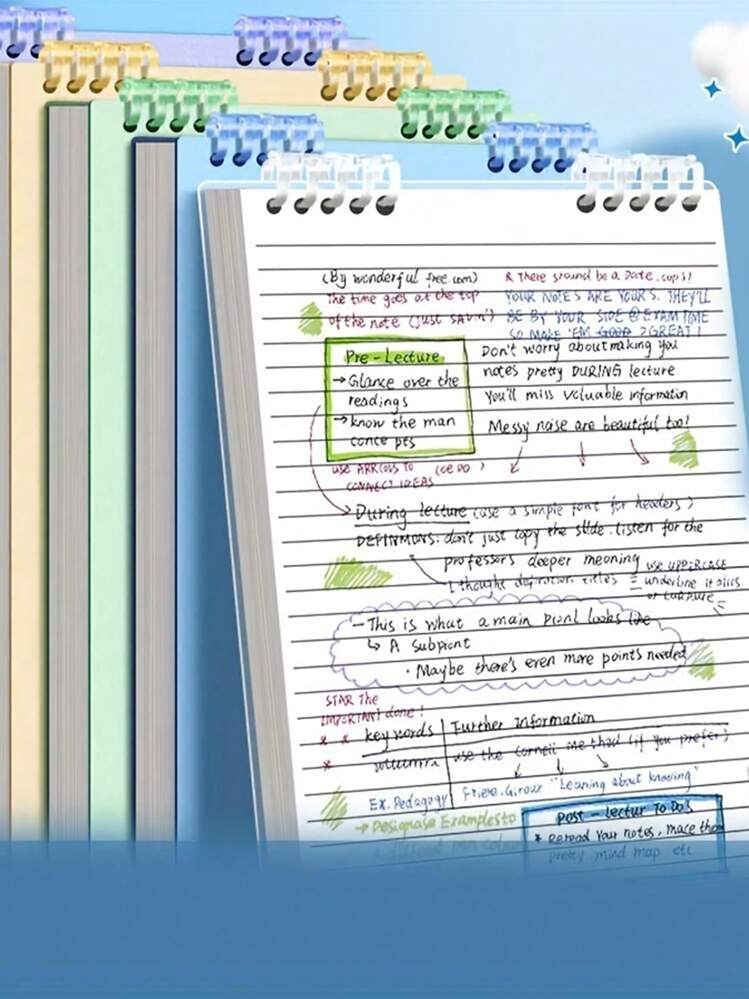 (By wonderful free com)
The time goes at the top
of the note (just savin')
& There sround be a Date.
YOUR NOTES ARE YOURS. THEY'LL
BE BY YOUR SIDE @ EXAM TIME
SO MAKE 'EM GOOD > GREAT!
Pre-Lecture
→ Glance over the
readings
→ know the man
conce pts
Don't worry about making you
notes pretty DURING lecture
You'll miss valuable information
Messy naise are beautiful too!
USE ARROWS TO
CONNECT IDEAS
During lecture (use a simple font for headers)
DEFINMONS: don't just copy the slide. listen for the
professors deeper meoning
I thought definition titles = use UPPERCASE
underline italics
- This is what a main piont looks like
↳ A subpiont
· Maybe there's even more points needed
STAR The
IMPORTANT done!
* * key words
*
Further Information
use the cornell me thod (if you prefer)
Ex. Pedagogy
Friere. Giroux "Leaning about knowing"
→ Designase Examples to
post - lectur To Do's
* Reread Your notes, mace them
pretty mind map etc